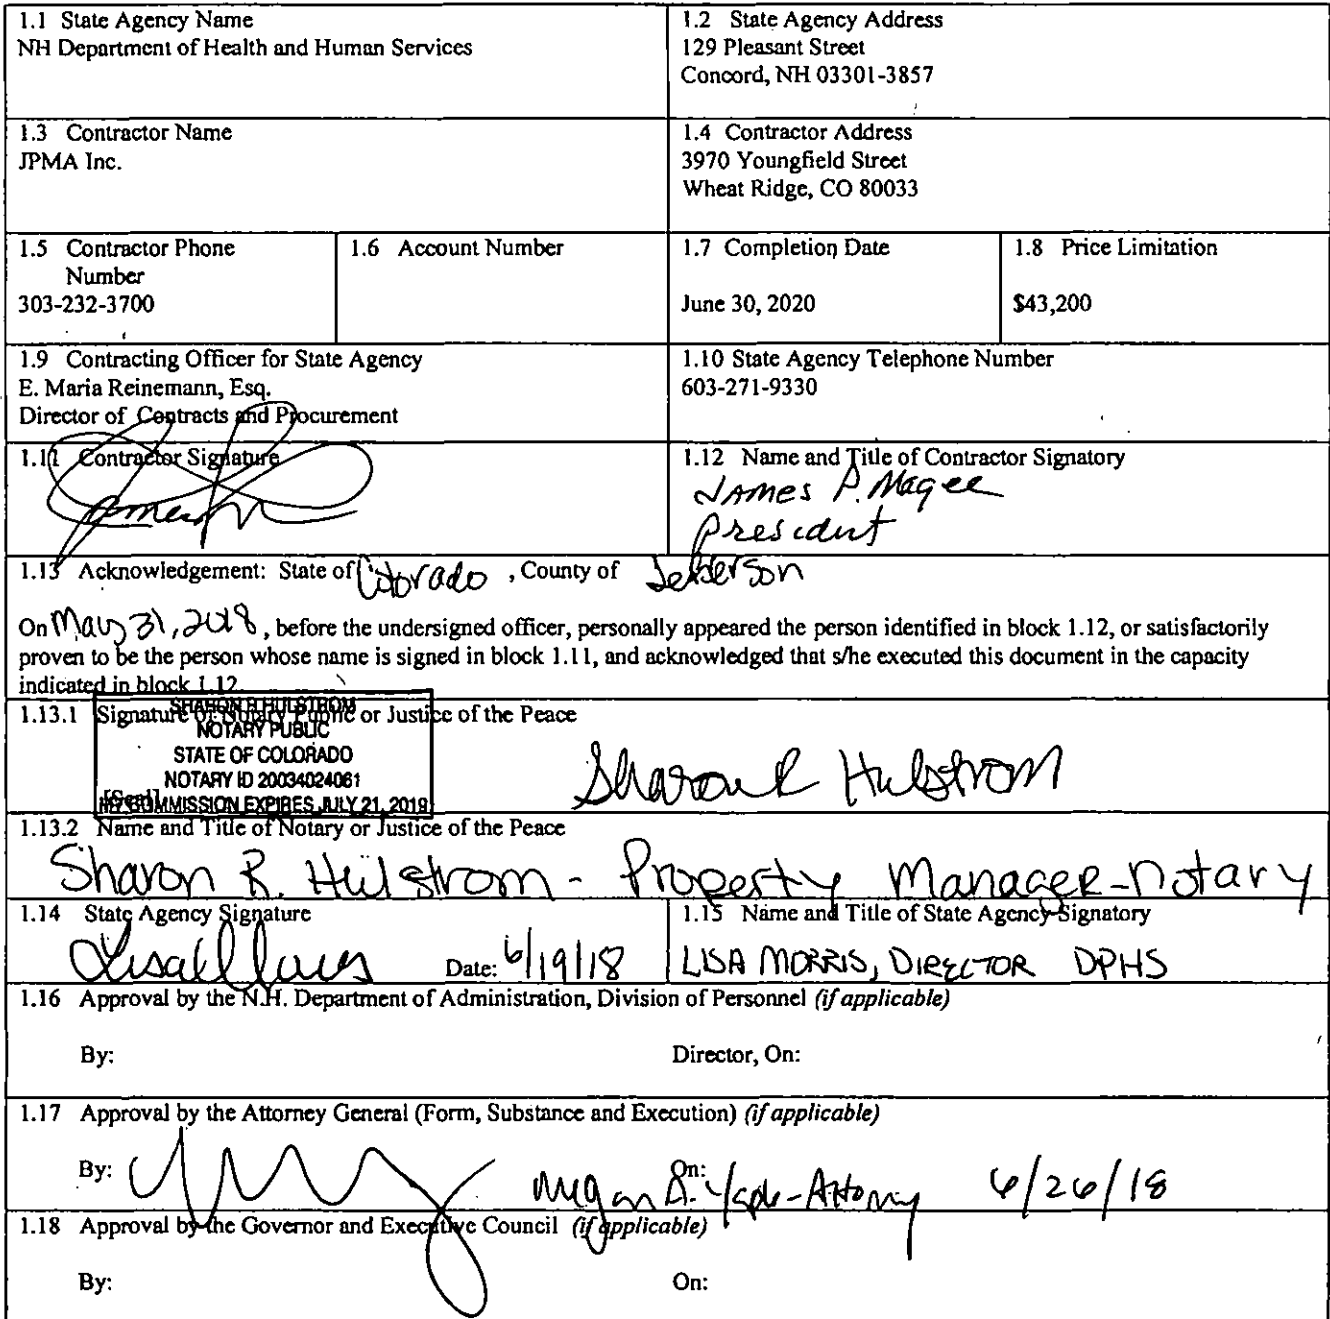 1.1 State Agency Name
NH Department of Health and Human Services
1.2 State Agency Address
129 Pleasant Street
Concord, NH 03301-3857
1.3 Contractor Name
JPMA Inc.
1.4 Contractor Address
3970 Youngfield Street
Wheat Ridge, CO 80033
1.5 Contractor Phone
Number
303-232-3700
1.6 Account Number
1.7 Completion Date
June 30, 2020
1.8 Price Limitation
$43,200
1.9 Contracting Officer for State Agency
E. Maria Reinemann, Esq.
Director of Contracts and Procurement
1.10 State Agency Telephone Number
603-271-9330
1.11 Contractor Signature
1.12 Name and Title of Contractor Signatory
James P. Magee
President
1.13 Acknowledgement: State of Colorado , County of Jefferson
On May 31, 2018, before the undersigned officer, personally appeared the person identified in block 1.12, or satisfactorily
proven to be the person whose name is signed in block 1.11, and acknowledged that s/he executed this document in the capacity
indicated in block 1.12.
1.13.1 Signature of Notary Public or Justice of the Peace
SHARON R HULSTROM
NOTARY PUBLIC
STATE OF COLORADO
NOTARY ID 20034024061
[Seal]
MY COMMISSION EXPIRES JULY 21, 2019
Sharon R Hulstrom
1.13.2 Name and Title of Notary or Justice of the Peace
Sharon R. Hulstrom - Property Manager-notary
1.14 State Agency Signature
Date: 6/19/18
1.15 Name and Title of State Agency Signatory
LISA MORRIS, DIRECTOR DPHS
1.16 Approval by the N.H. Department of Administration, Division of Personnel (if applicable)
By:
Director, On:
1.17 Approval by the Attorney General (Form, Substance and Execution) (if applicable)
By:
On:
Megan A. Yaple-Attorney 6/26/18
1.18 Approval by the Governor and Executive Council (if applicable)
By:
On: